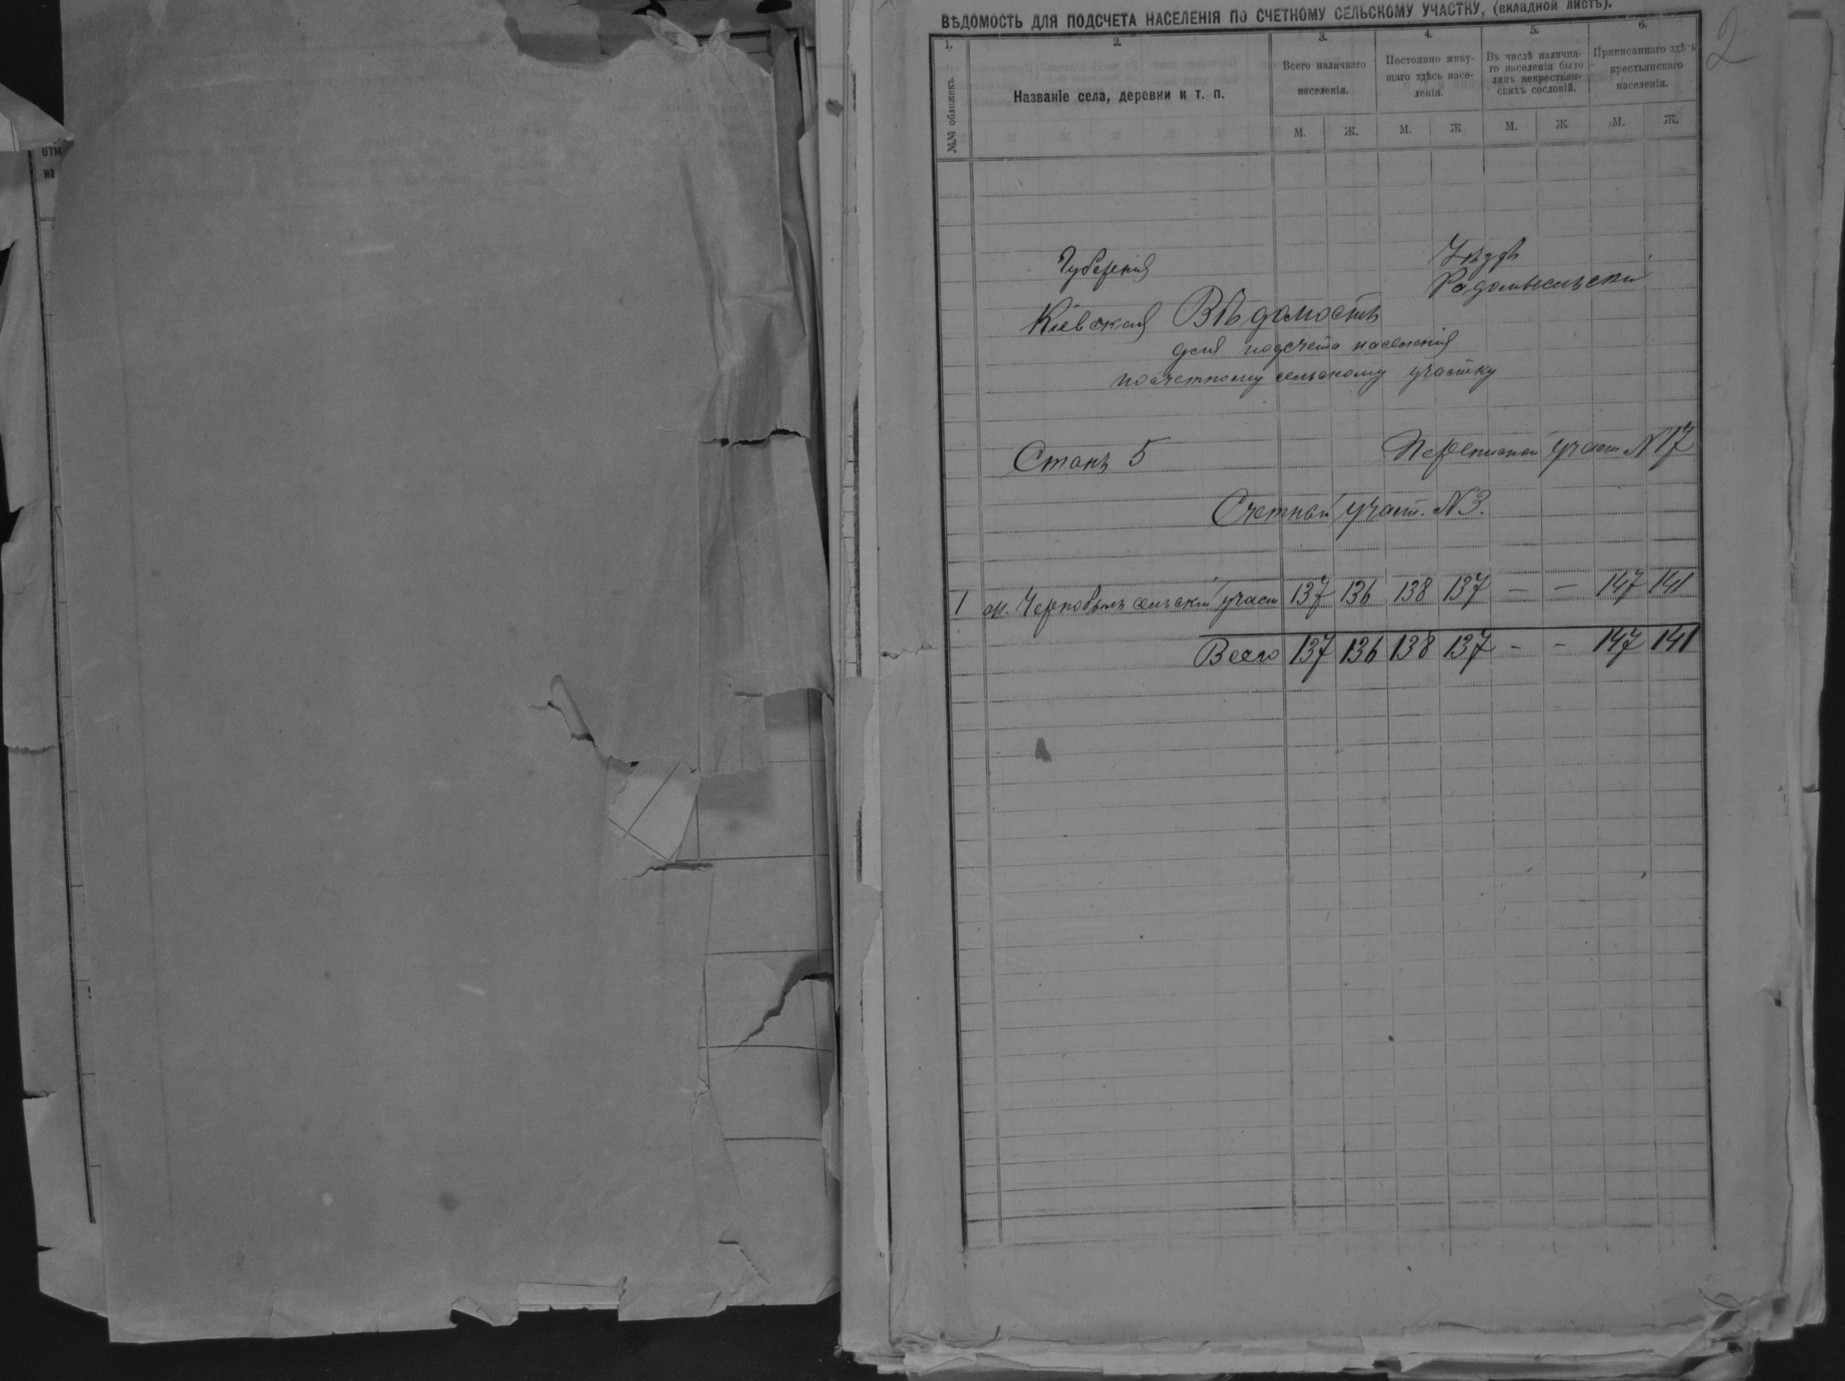 ВѢДОМОСТЬ ДЛЯ ПОДСЧЕТА НАСЕЛЕНІЯ ПО СЧЕТНОМУ СЕЛЬСКОМУ УЧАСТКУ, (вкладной листъ).
2
1. 2. 3. 4. 5. 6.
№№ обложекъ.
Названіе села, деревни и т. п.
Всего наличнаго населенія.
Постоянно живущаго здѣсь населенія.
Въ числѣ наличнаго населенія было лицъ некрестьянскихъ сословій.
Приписаннаго здѣсь крестьянскаго населенія.
М. Ж. М. Ж. М. Ж. М. Ж.
Губернія Уѣздъ
Кіевская Радомысльскій
Вѣдомость
для подсчета населенія
по счетному сельскому участку
Станъ 5 Переписной участ. № 17
Счетный участ. № 3.
1 м. Чернобыль сельскій участ 137 136 138 137 — — 147 141
Всего 137 136 138 137 - - 147 141